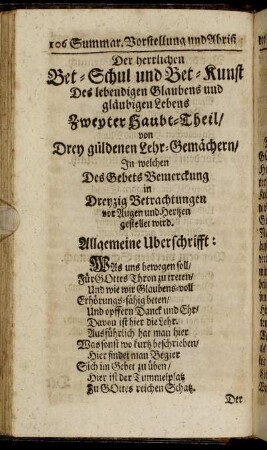 106 Summar. Vorstellung und Abriß
Der herrlichen
Bet-Schul und Bet-Kunst
Des lebendigen Glaubens und
gläubigen Lebens
Zweyter Haubt-Theil/
von
Drey güldenen Lehr-Gemächern/
In welchen
Des Gebets Bemerckung
in
Dreyzig Betrachtungen
vor Augen und Hertzen
gestellet wird.
Allgemeine Uberschrifft:
WAs uns bewegen soll/
Für GOttes Thron zu treten/
Und wie wir Glaubens-voll
Erhörungs-fähig beten/
Und opffern Danck und Ehr/
Davon ist hier die Lehr.
Ausführlich hat man hier
Was sonst wo kurtz beschrieben/
Hier findet man Begier
Sich im Gebet zu üben/
Hier ist der Tummelplatz
Zu GOttes reichen Schatz.
Der